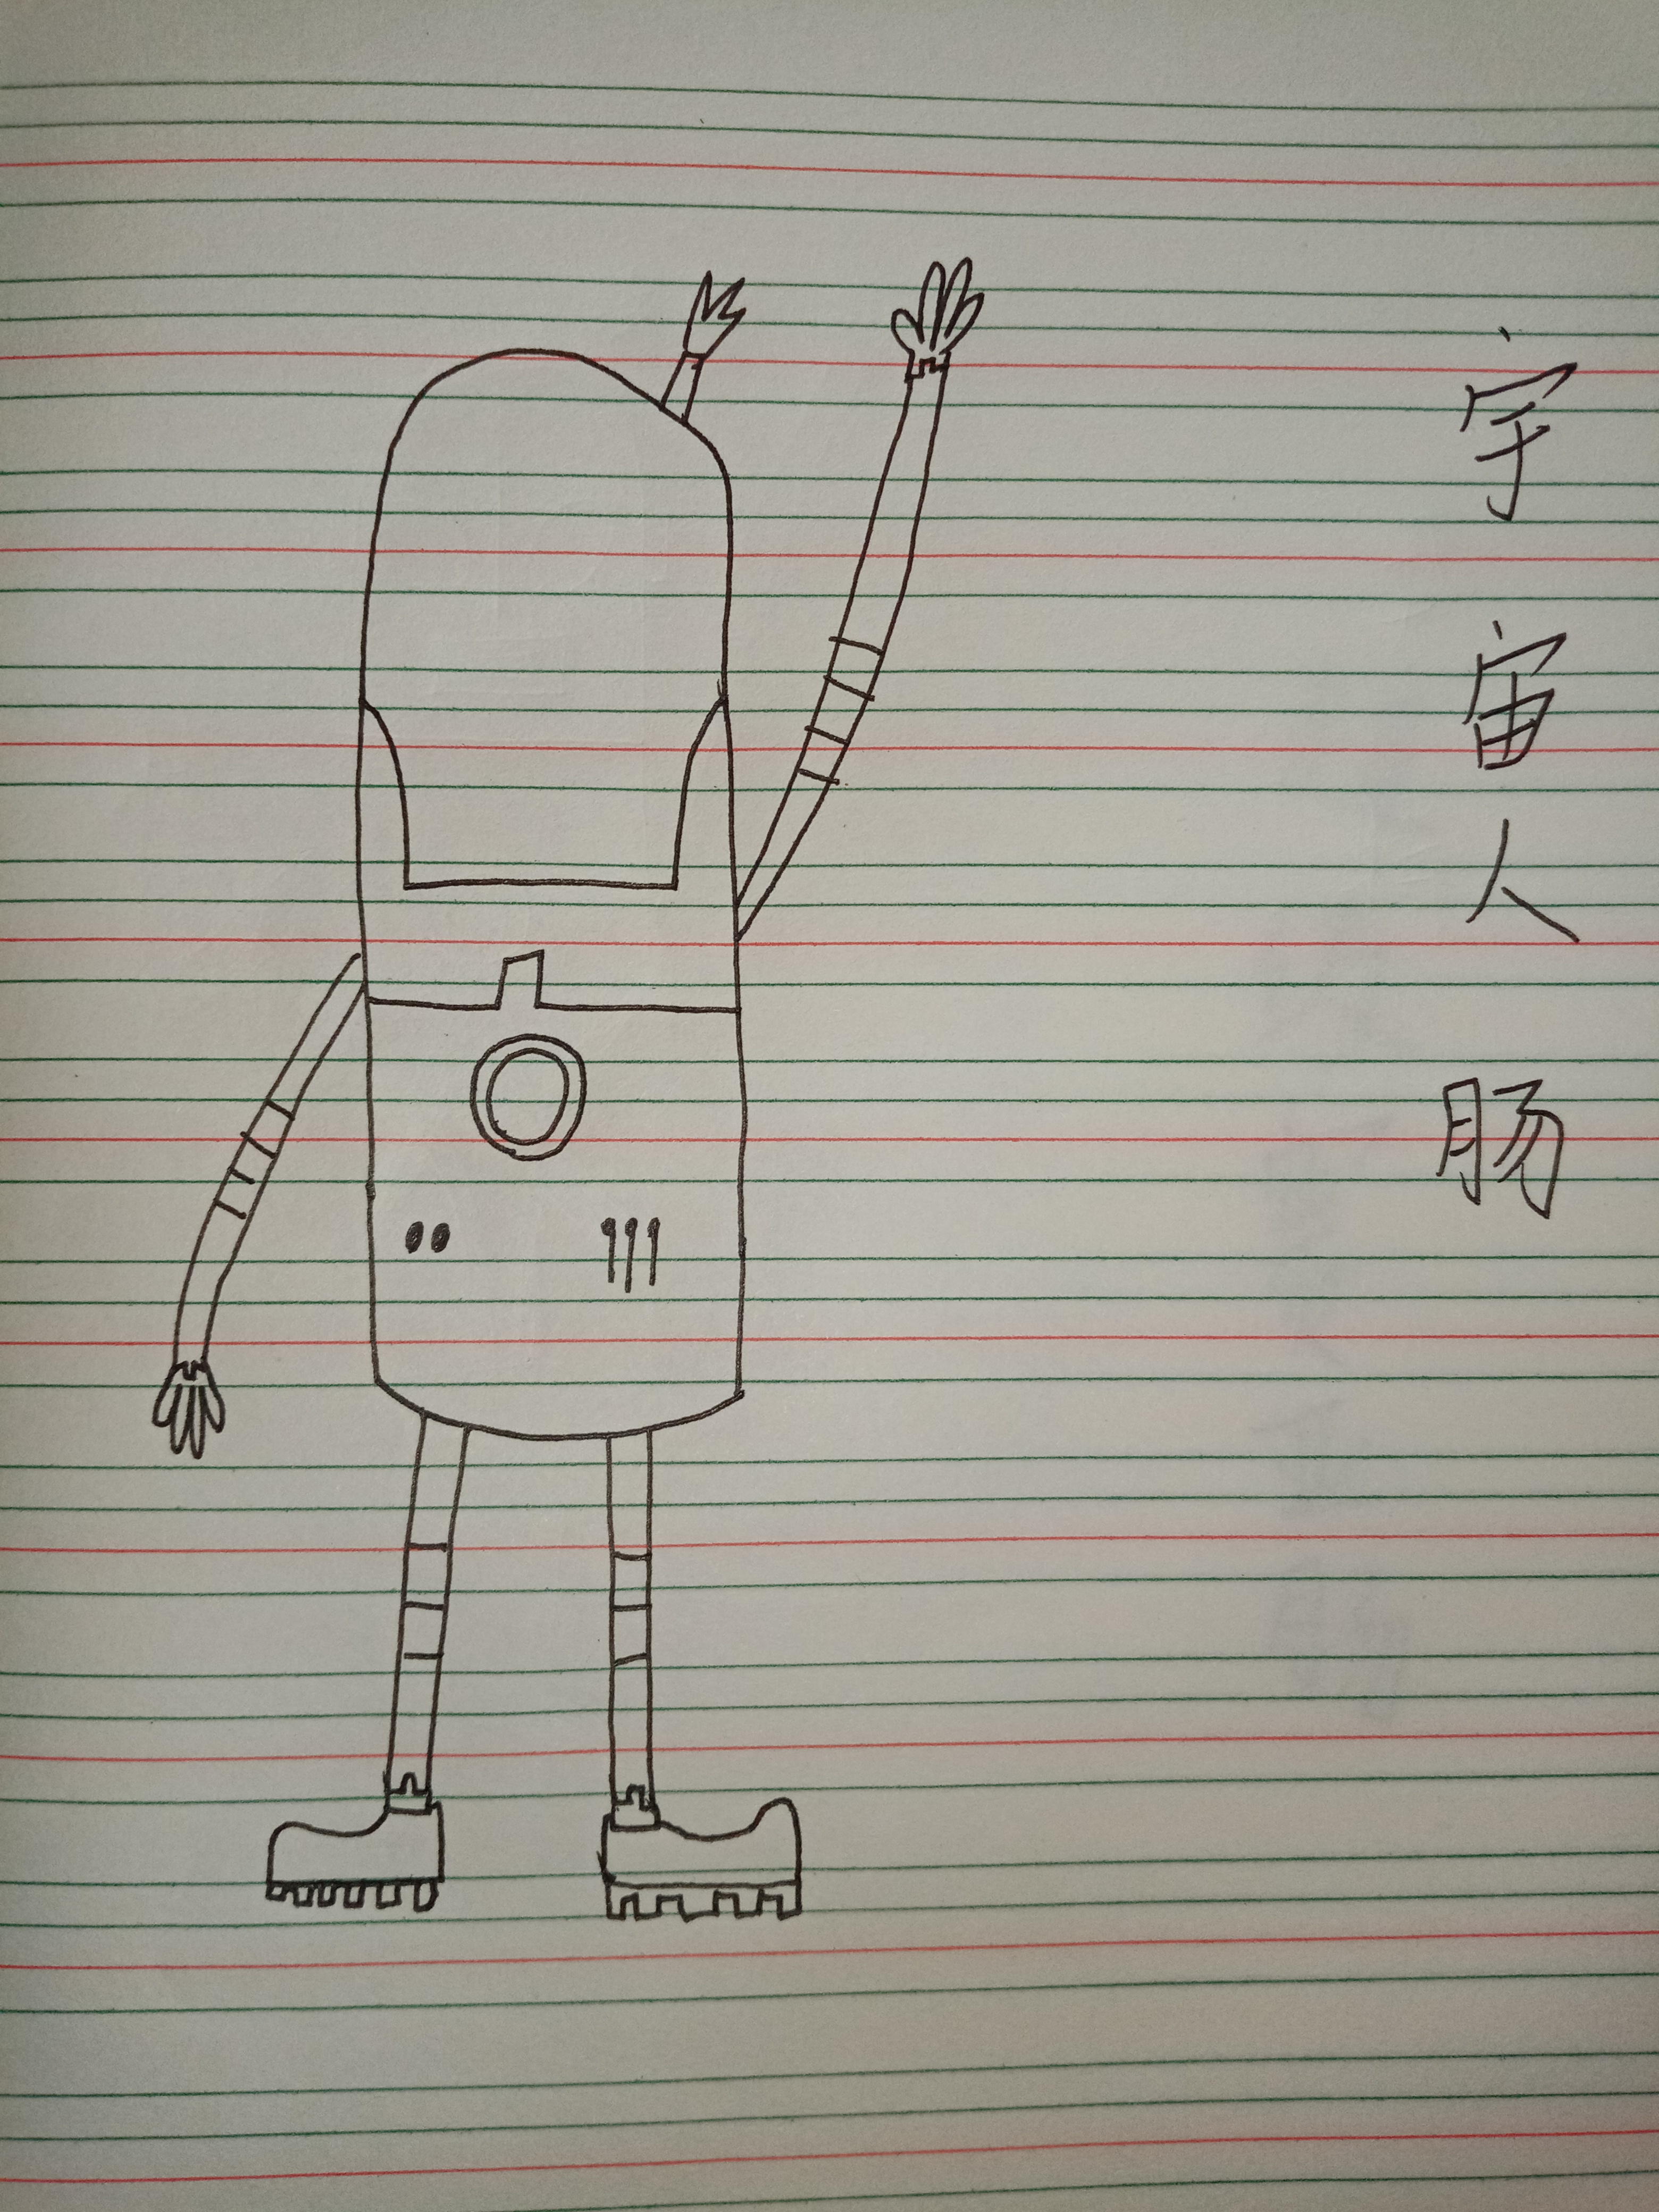 宇宙人
肠